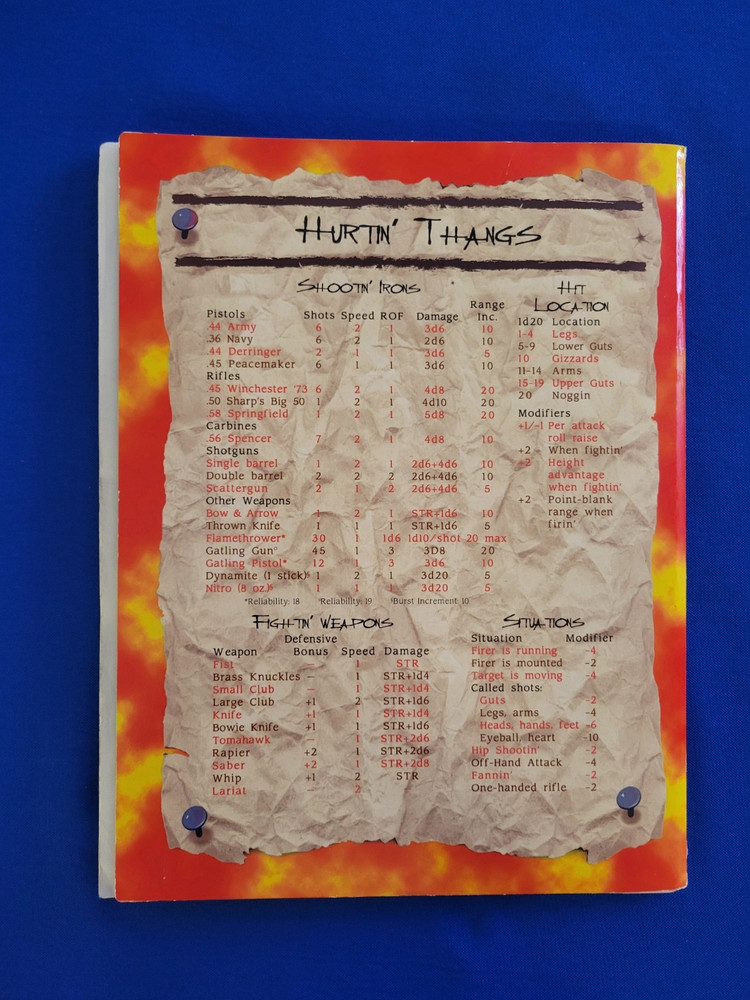 HURTIN' THANGS
SHOOTIN' IRONS
Pistols Shots Speed ROF Damage Range Inc.
.44 Army 6 2 1 3d6 10
.36 Navy 6 2 1 2d6 10
.44 Derringer 2 1 1 3d6 5
.45 Peacemaker 6 1 1 3d6 10
Rifles
.45 Winchester '73 6 2 1 4d8 20
.50 Sharp's Big 50 1 2 1 4d10 20
.58 Springfield 1 2 1 5d8 20
Carbines
.56 Spencer 7 2 1 4d8 10
Shotguns
Single barrel 1 2 1 2d6+4d6 10
Double barrel 2 2 2 2d6+4d6 10
Scattergun 2 1 2 2d6+4d6 5
Other Weapons
Bow & Arrow 1 2 1 STR+1d6 10
Thrown Knife 1 1 1 STR+1d6 5
Flamethrower* 30 1 1d6 1d10/shot 20 max
Gatling Gun 45 1 3 3D8 20
Gatling Pistol* 12 1 3 3d6 10
Dynamite (1 stick) 1 2 1 3d20 5
Nitro (8 oz.) 1 1 1 3d20 5
*Reliability: 18 Reliability: 19 Burst Increment: 10
HIT
LOCATION
1d20 Location
1-4 Legs
5-9 Lower Guts
10 Gizzards
11-14 Arms
15-19 Upper Guts
20 Noggin
Modifiers
+1/-1 Per attack
roll raise
+2 When fightin'
+2 Height
advantage
when fightin'
+2 Point-blank
range when
firin'
FIGHTIN' WEAPONS
Defensive
Weapon Bonus Speed Damage
Fist – 1 STR
Brass Knuckles – 1 STR+1d4
Small Club – 1 STR+1d4
Large Club +1 2 STR+1d6
Knife +1 1 STR+1d4
Bowie Knife +1 1 STR+1d6
Tomahawk – 1 STR+2d6
Rapier +2 1 STR+2d6
Saber +2 1 STR+2d8
Whip +1 2 STR
Lariat – 2
SITUATIONS
Situation Modifier
Firer is running -4
Firer is mounted -2
Target is moving -4
Called shots:
Guts -2
Legs, arms -4
Heads, hands, feet -6
Eyeball, heart -10
Hip Shootin' -2
Off-Hand Attack -4
Fannin' -2
One-handed rifle -2